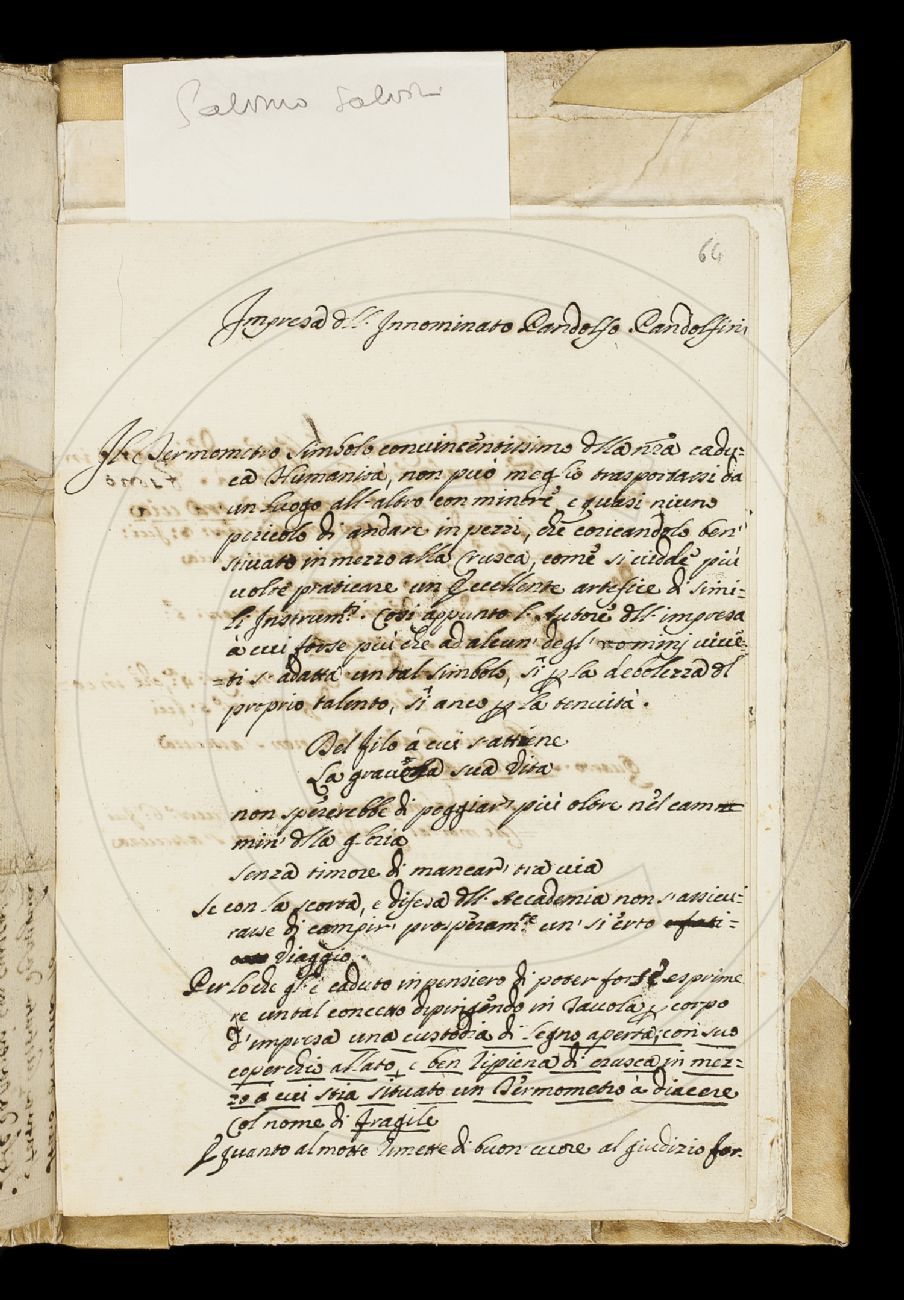 Salvino Salvini
64
Impresa dll' Innominato Pandolfo Pandolfini
Il Termometro simbolo convincentissimo dlla nrã cadu-
ca Humanità, non può meglio trasportarsi da
un luogo all' altro con minore, e quasi niuno
pericolo di andare in pezzi, che coricandolo ben'
situato in mezzo alla Crusca, come si vidde più
volte praticare un Eccellente artefice di simi-
li Instrumti. Così appunto l' Autore dll' impresa
à cui forse più che ad alcun' degl' uomini vivē-
=ti s' adatta un tal simbolo, sì p la debolezza dl
proprio talento, sì anco p la tenuità.
Del filo à cui s' attiene
La gravosa sua Vita
non spererebbe di poggiar' più oltre nel cam
min' dlla gloria
senza timore di mancar' tra via
se con la scorta, e difesa dll' Accademia non s' assicu-
rasse di compir' prosperamte un' sì erto
Viaggio.
Perloche gl' è caduto in pensiero di poter forse esprime
re un tal concetto dipingendo in Tavola p corpo
d' impresa una custodia di legno aperta, con suo
coperchio allato, e ben ripiena di crusca, in mez-
zo à cui stia situato un Termometro à diacere
Col nome di fragile
Quanto al motto rimette di buon cuore al giudizio for-